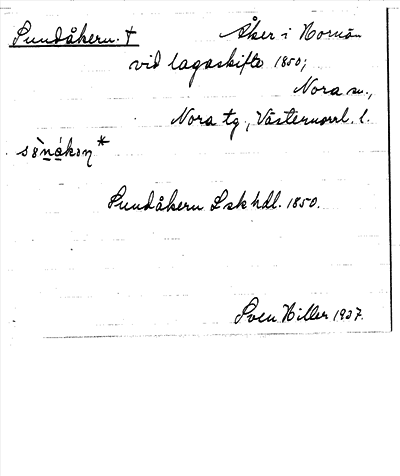 Sundåkern. †
Åker i Nornäs
vid lagaskifte 1850;
Nora sn.,
Nora tg., Västernorrl. l.
Sundåkern L sk hdl. 1850.
Sven Hiller 1937.